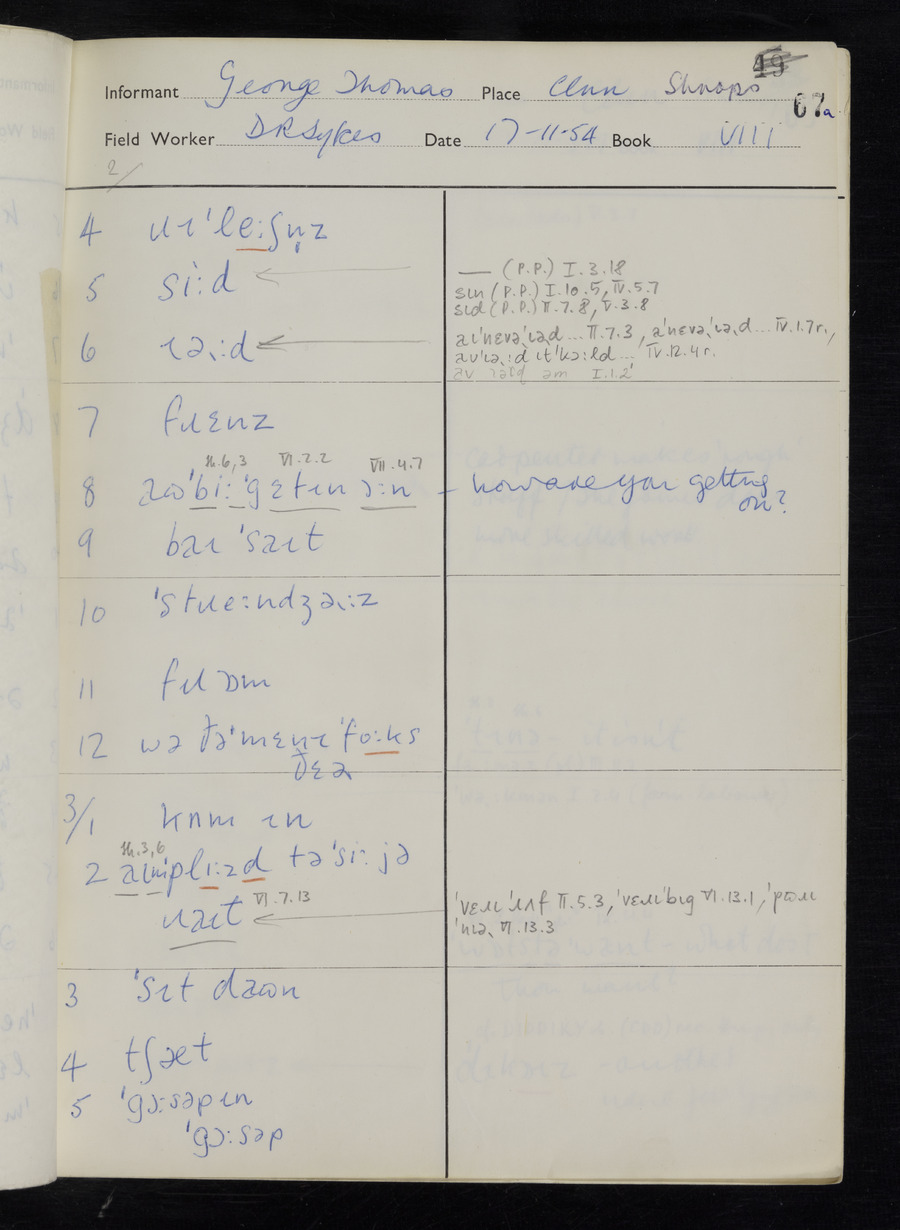 49
Informant George Thomas Place Clun Shrops
67a
Field Worker D R Sykes Date 17-11-54 Book VIII
2/
4 ɹɪˈleːʃn̩z
5 siːd
— (P.P.) I.3.18
sɪn (P.P.) I.10.5, IV.5.7
sɪd (P.P.) II.7.8, V.3.8
6 ɪəːd
II.7.3, IV.1.7r.,
IV.12.4r.
I.1.2
7 fɹɛnz
VI.2.2 VII.4.7
8 aʊˈbiː ˈgɛtɪn ɔːn – how are you getting on?
9 baɪ ˈsaɪt
10 ˈstɹeːndʒəːz
11 fɹɒm
12 wə ðəˈmɛnɪ ˈfoːks
ðɛə
3/1 kʌm ɪn
3,6
2 aɪmpliːzd təˈsiː jə
ɹaɪt VI.7.13
ˈvɛɹɪ ˈɹʌf II.5.3, ˈvɛɹɪ ˈbɪg VI.13.1,
VI.13.3
3 ˈsɪt daʊn
4 tʃæt
5 ˈgɔːsəpɪn
ˈgɔːsəp